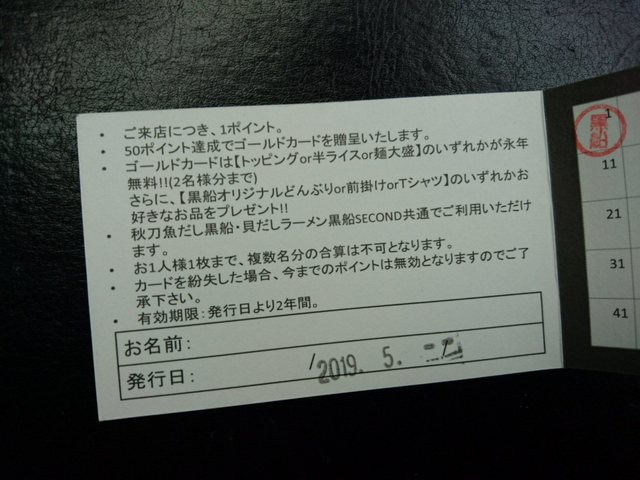 ・ ご来店につき、1ポイント。
・ 50ポイント達成でゴールドカードを贈呈いたします。
・ ゴールドカードは【トッピングor半ライスor麺大盛】のいずれかが永年
無料!!(2名様分まで)
さらに、【黒船オリジナルどんぶりor前掛けorTシャツ】のいずれかお
好きなお品をプレゼント!!
・ 秋刀魚だし黒船・貝だしラーメン黒船SECOND共通でご利用いただけ
ます。
・ お1人様1枚まで、複数名分の合算は不可となります。
・ カードを紛失した場合、今までのポイントは無効となりますのでご了
承下さい。
・ 有効期限：発行日より2年間。
お名前：
発行日： / 2019. 5.
1
黒船
11
21
31
41